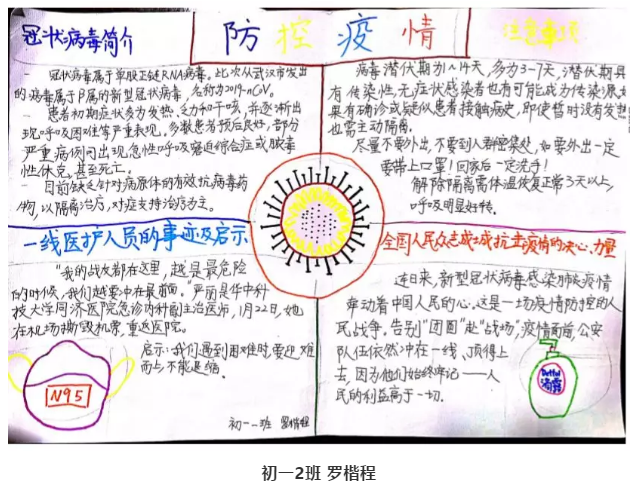 防控疫情
冠状病毒简介
一 冠状病毒属于单股正链RNA病毒。此次从武汉市发出
的病毒属于β属的新型冠状病毒，名称为2019-nCoV。
一 患者初期症状多为发热、乏力和干咳，并逐渐出
现呼吸困难等严重表现。多数患者预后良好，部分
严重病例可出现急性呼吸窘迫综合症或脓毒
性休克，甚至死亡。
一 目前缺乏针对病原体的有效抗病毒药
物，以隔离治疗，对症支持治疗为主。
注意事项
病毒潜伏期为1~14天，多为3-7天，潜伏期具
有传染性，无症状感染者也有可能成为传染源。如
果有确诊或疑似患者接触病史，即使暂时没有发
也需主动隔离。
尽量不要外出，不要到人群密集处，如要外出一定
要带上口罩！回家后一定洗手！
解除隔离需体温恢复正常3天以上，
呼吸明显好转。
一线医护人员的事迹及启示
"我的战友都在这里，越是最危险
的时候，我们越要冲在最前面。"严丽是华中科
技大学同济医院急诊内科副主治医师，1月22日，她
在机场撕毁机票，重返医院。
启示：我们遇到困难时要迎难
而上，不能退缩。
N95
初一二班 罗楷程
全国人民众志成城抗击疫情的决心、力量
连日来，新型冠状病毒感染肺炎疫情
牵动着中国人民的心。这是一场疫情防控的人
民战争。告别"团圆"赴"战场，疫情面前，公安
队伍依然冲在一线，顶得上
去，因为他们始终牢记——人
民的利益高于一切。
Dettol
消毒
初一2班 罗楷程